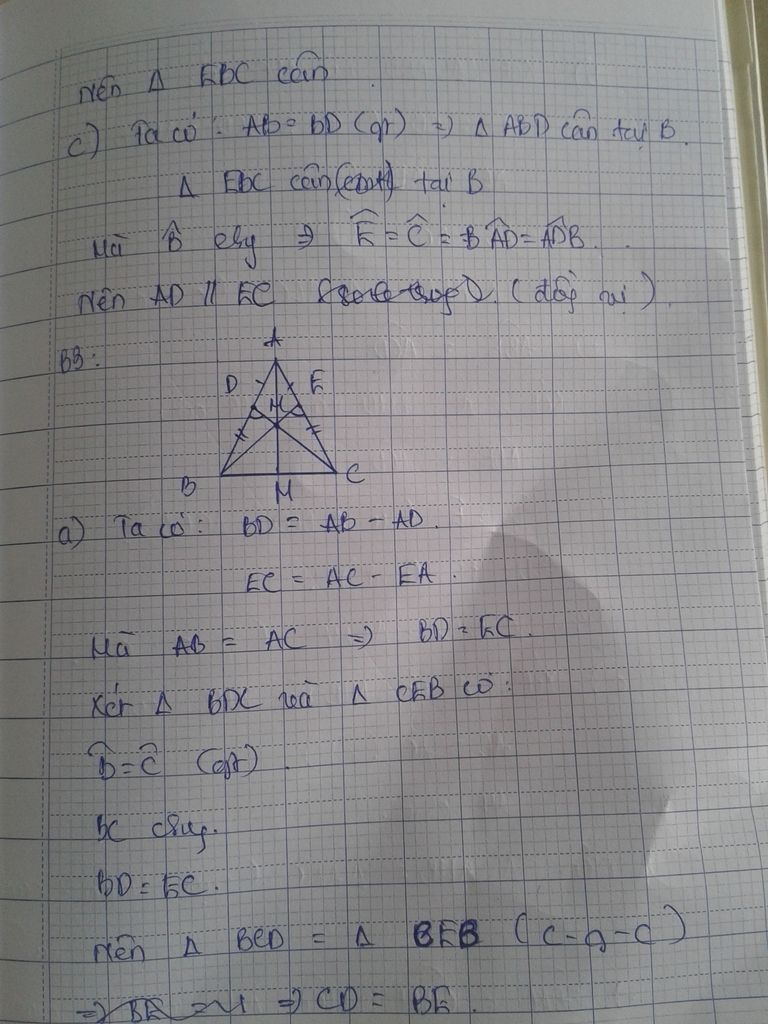 nên Δ EBC cân
c) Ta có : AB = BD (gt) => Δ ABD cân tại B.
Δ EBC cân (cmt) tại B
Mà B̂ chung => Ê = Ĉ = BÂD = AD̂B.
Nên AD // EC (đồng vị).
B3:
A
D E
H
B C
M
a) Ta có : BD = AB - AD.
EC = AC - EA.
Mà AB = AC => BD = EC.
Xét Δ BDC và Δ CEB có :
B̂ = Ĉ (gt)
BC chung.
BD = EC.
Nên Δ BCD = Δ BEB (c-g-c)
=> CD = BE.